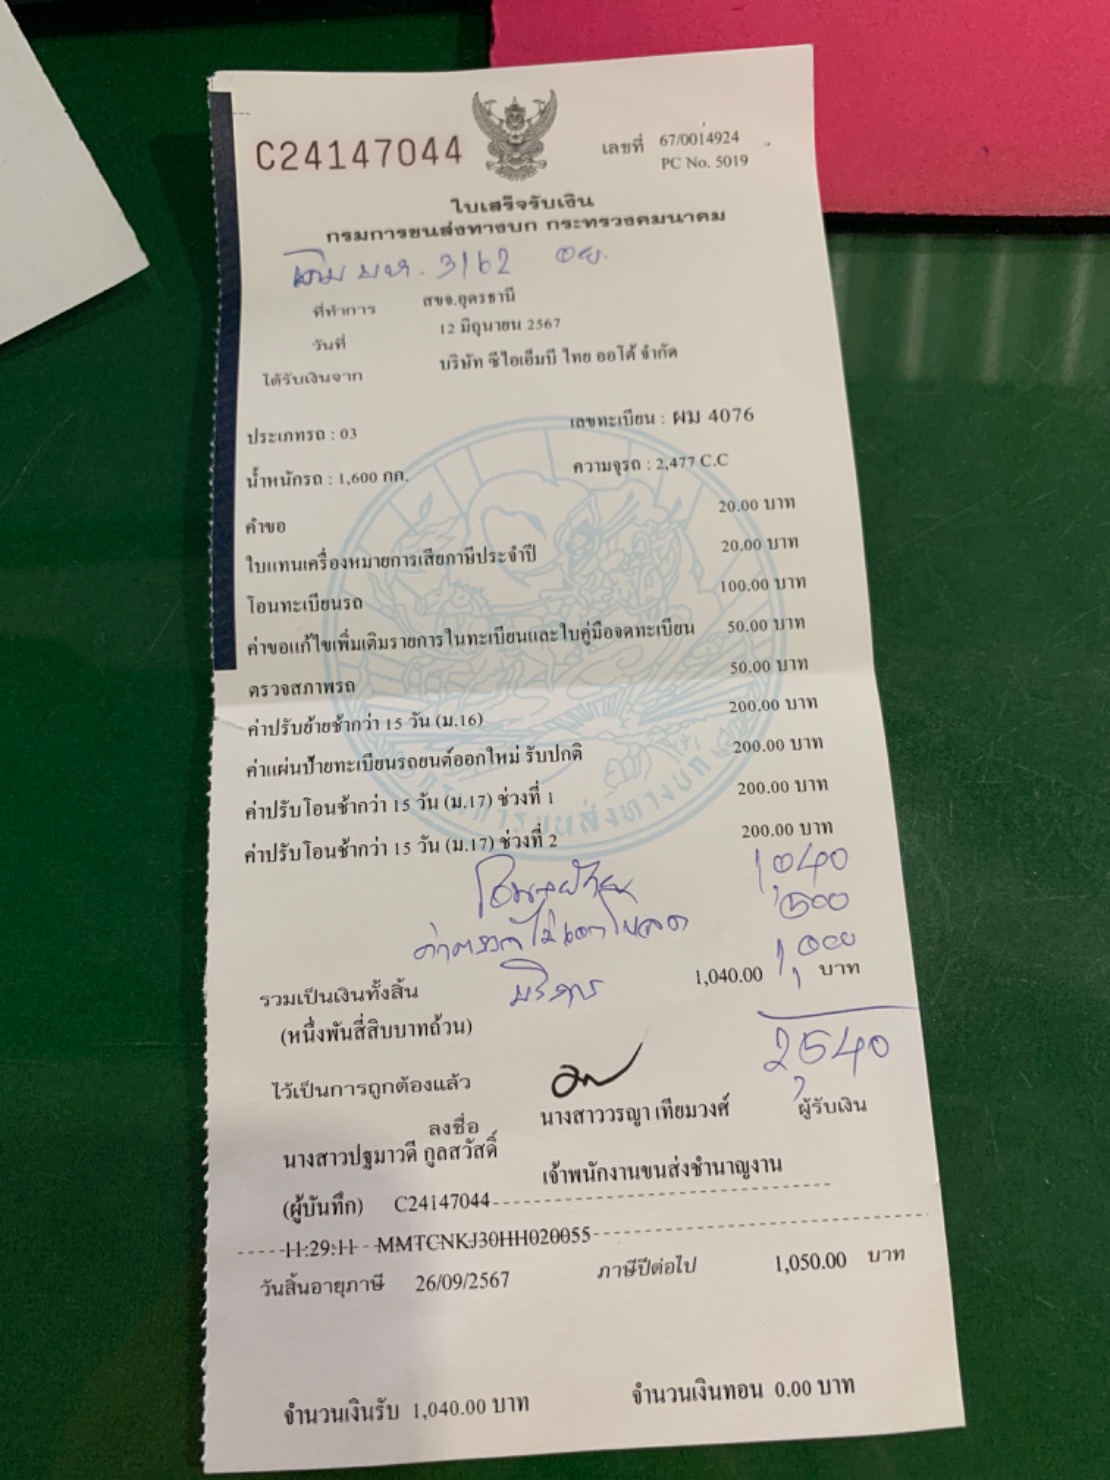 C24147044
เลขที่ 67/0014924
PC No. 5019
ใบเสร็จรับเงิน
กรมการขนส่งทางบก กระทรวงคมนาคม
เดิม บห. 3162 อย.
ที่ทำการ สขจ.อุดรธานี
วันที่ 12 มิถุนายน 2567
ได้รับเงินจาก บริษัท ซีไอเอ็มบี ไทย ออโต้ จำกัด
ประเภทรถ : 03 เลขทะเบียน : ผม 4076
น้ำหนักรถ : 1,600 กก. ความจุรถ : 2,477 C.C
คำขอ 20.00 บาท
ใบแทนเครื่องหมายการเสียภาษีประจำปี 20.00 บาท
โอนทะเบียนรถ 100.00 บาท
ค่าขอแก้ไขเพิ่มเติมรายการในทะเบียนและใบคู่มือจดทะเบียน 50.00 บาท
ตรวจสภาพรถ 50.00 บาท
ค่าปรับย้ายช้ากว่า 15 วัน (ม.16) 200.00 บาท
ค่าแผ่นป้ายทะเบียนรถยนต์ออกใหม่ รับปกติ 200.00 บาท
ค่าปรับโอนช้ากว่า 15 วัน (ม.17) ช่วงที่ 1 200.00 บาท
ค่าปรับโอนช้ากว่า 15 วัน (ม.17) ช่วงที่ 2 200.00 บาท
กรมการขนส่งทางบก
1,040
500
บริการ 1,000
รวมเป็นเงินทั้งสิ้น 1,040.00 บาท
(หนึ่งพันสี่สิบบาทถ้วน)
2,540
ไว้เป็นการถูกต้องแล้ว
ลงชื่อ นางสาววรญา เทียมวงศ์ ผู้รับเงิน
นางสาวปฐมาวดี กูลสวัสดิ์
เจ้าพนักงานขนส่งชำนาญงาน
(ผู้บันทึก) C24147044
11:29:11 MMTCNKJ30HH020055
วันสิ้นอายุภาษี 26/09/2567 ภาษีปีต่อไป 1,050.00 บาท
จำนวนเงินรับ 1,040.00 บาท จำนวนเงินทอน 0.00 บาท